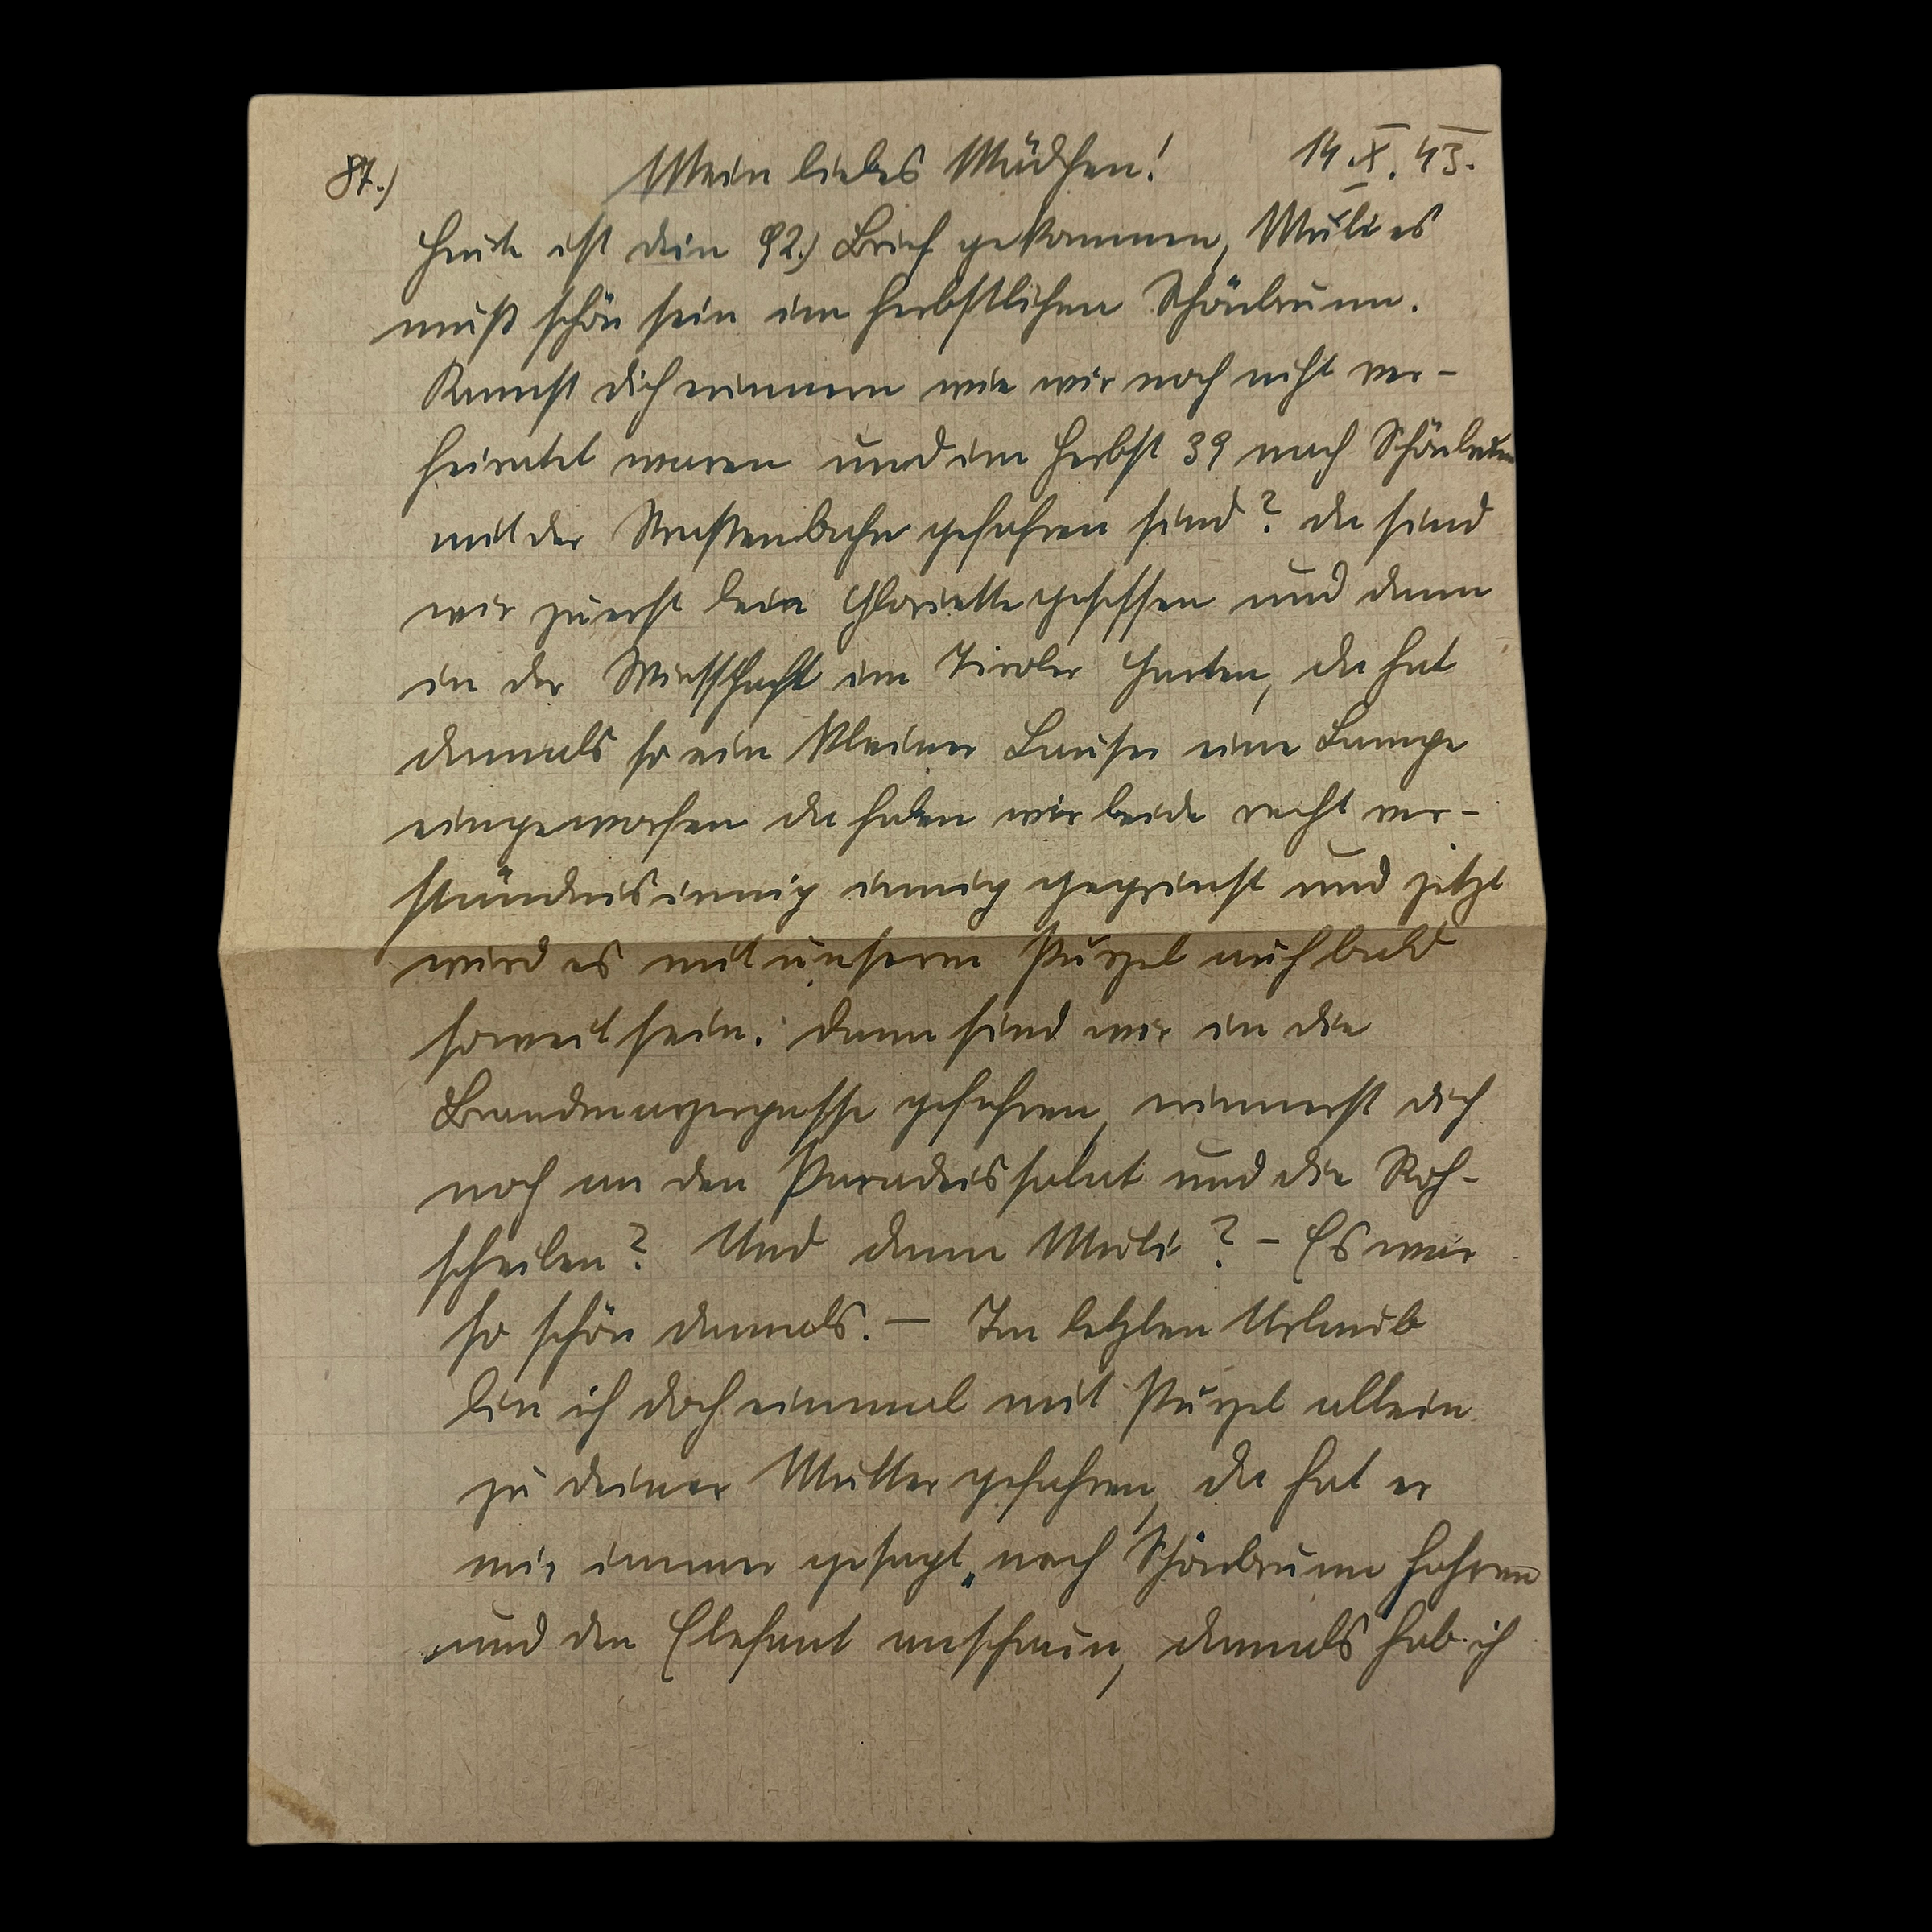 87.) Mein liebes Mädchen! 14.X.43.
Heute ist dein 92.) Brief gekommen, Muli es
muß schön sein im herbstlichen Schönbrunn.
Kannst dich erinnern wie wir noch nicht ver-
heiratet waren und im Herbst 39 nach Schönbrunn
mit der Strassenbahn gefahren sind? Da sind
wir zuerst beim Gloriette gesessen und dann
in der Wirtschaft im Tiroler Garten, da hat
damals so ein kleiner Lauser eine Lampe
eingeworfen da haben wir beide recht ver-
ständnisinnig innig gegrinst und jetzt
wird es mit unserem Purzel auch bald
soweit sein. Dann sind wir in die
Brandmayergasse gefahren, erinnerst dich
noch an den Paradeissalat und die Roh-
scheiben? Und dann Muli? – Es war
so schön damals. – Im letzten Urlaub
bin ich doch einmal mit Purzel allein
zu deiner Mutter gefahren, da hat er
mir immer gesagt „nach Schönbrunn fahren
und den Elefant anschaun, damals hab ich